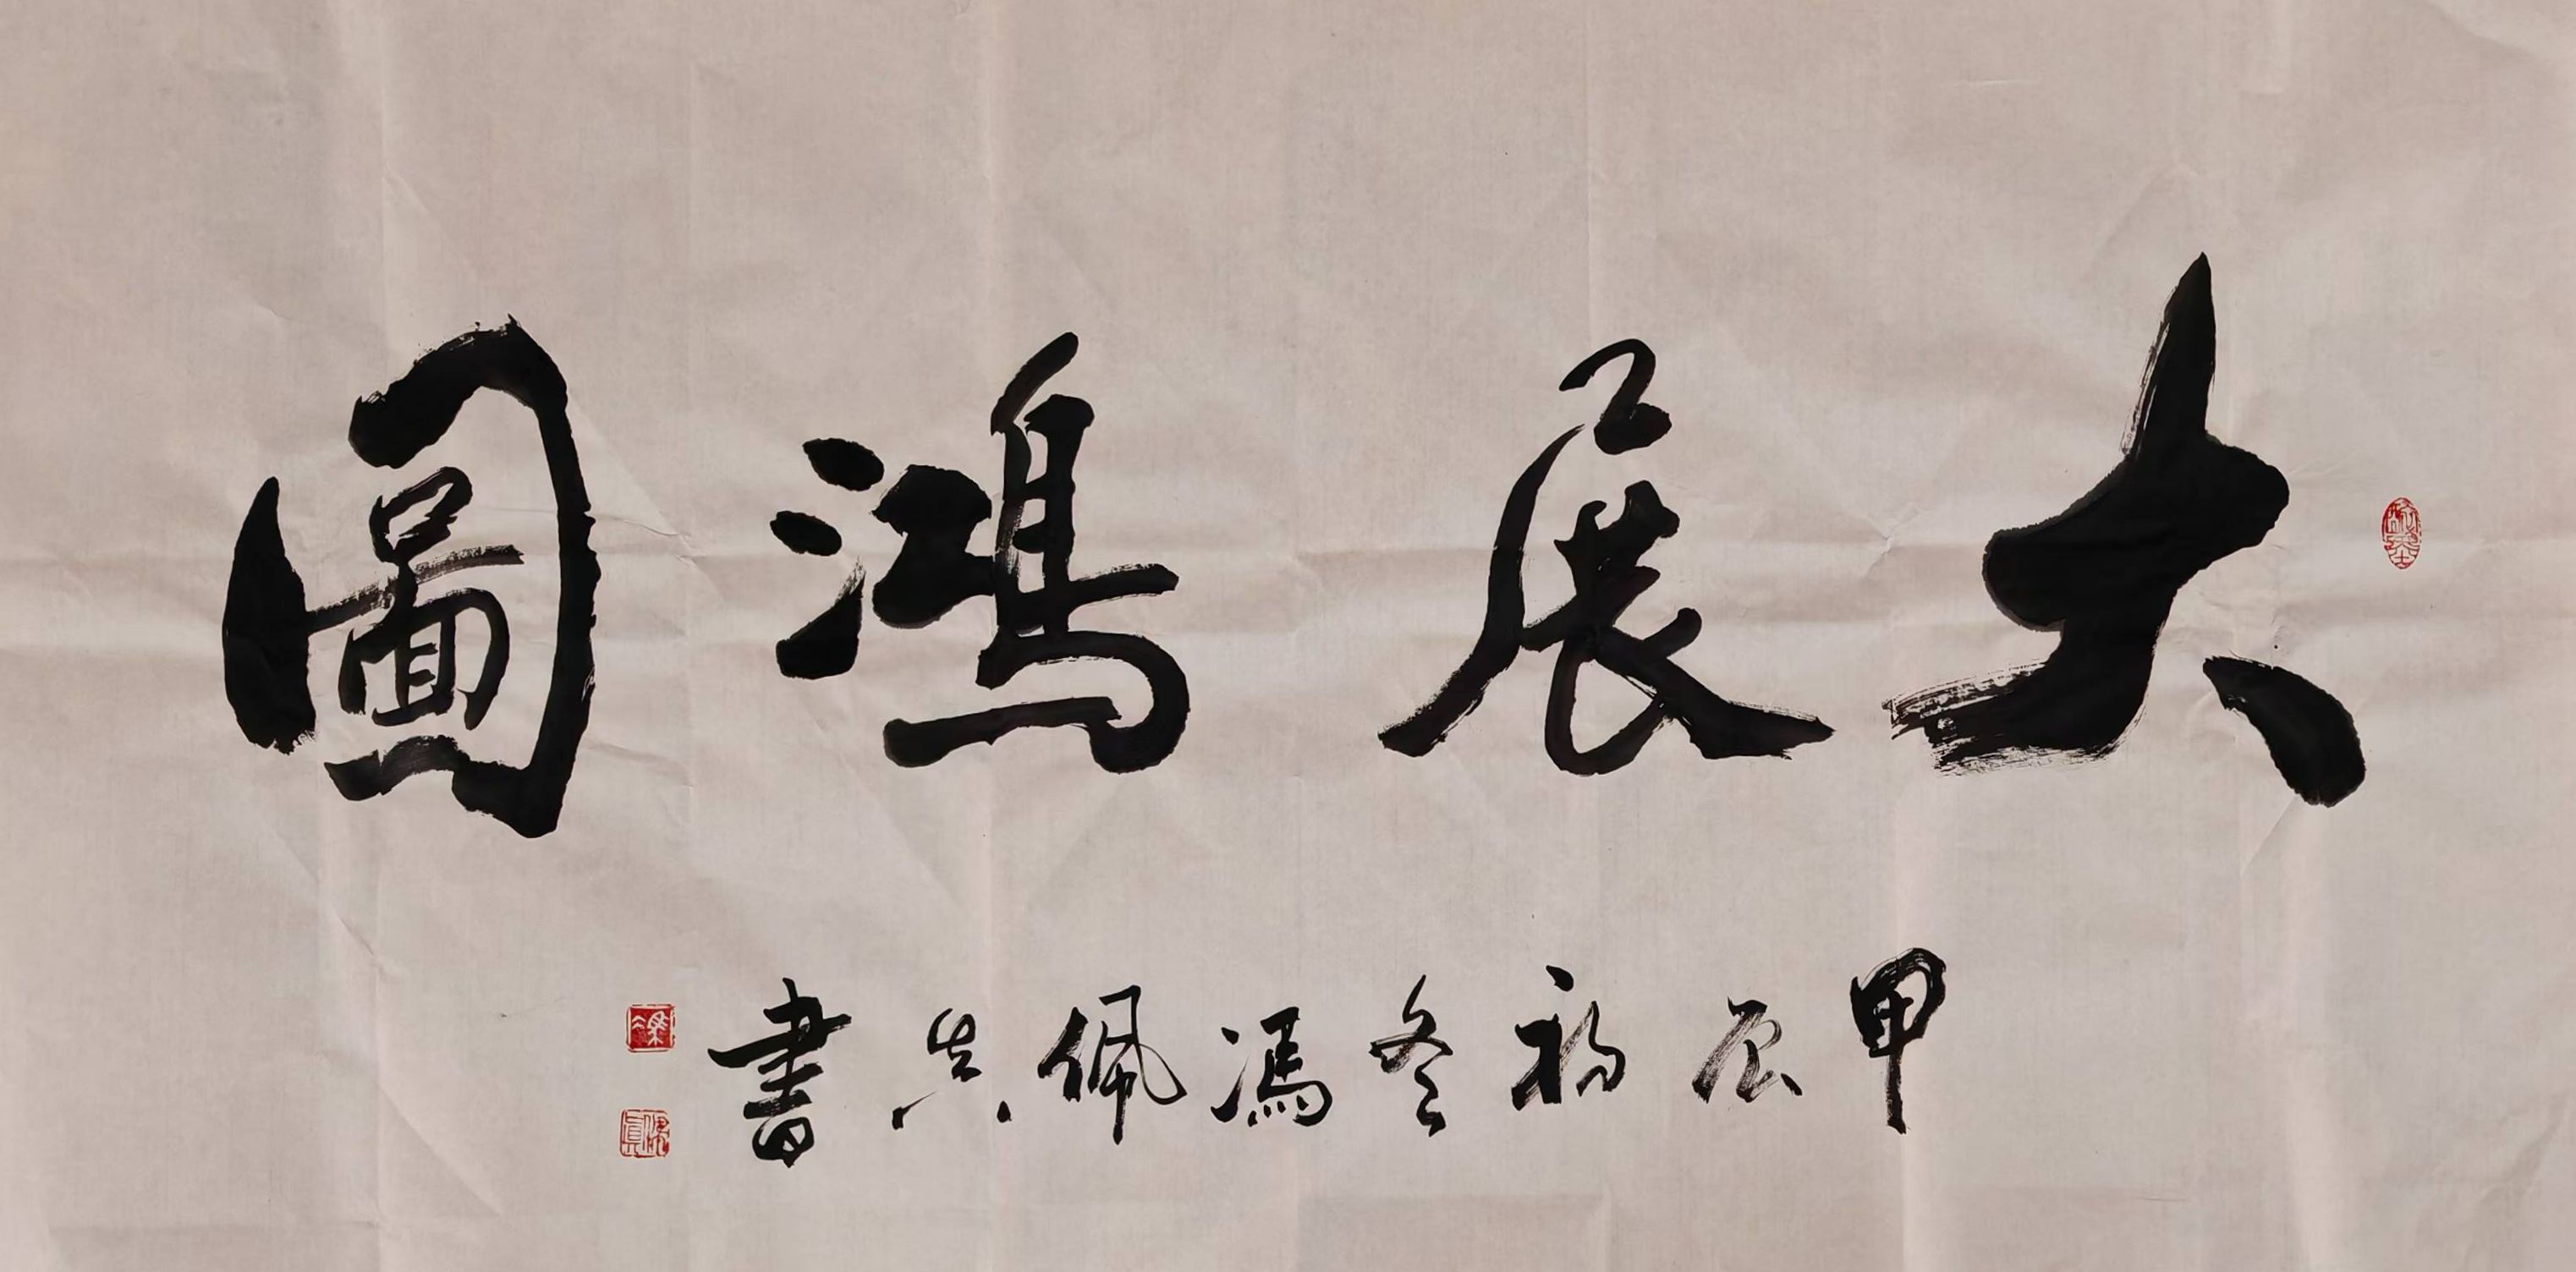 大展鴻圖
甲辰初冬馮佩真書